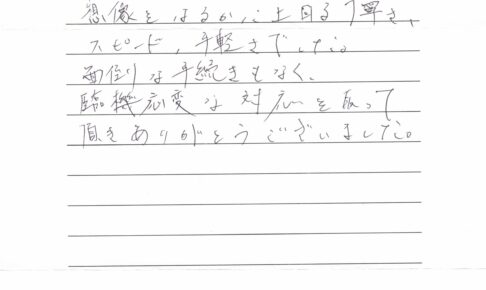 想像をはるかに上回る早さ、
スピード、手軽さでした。
面倒な手続きもなく、
臨機応変な対応を取って
頂きありがとうございました。